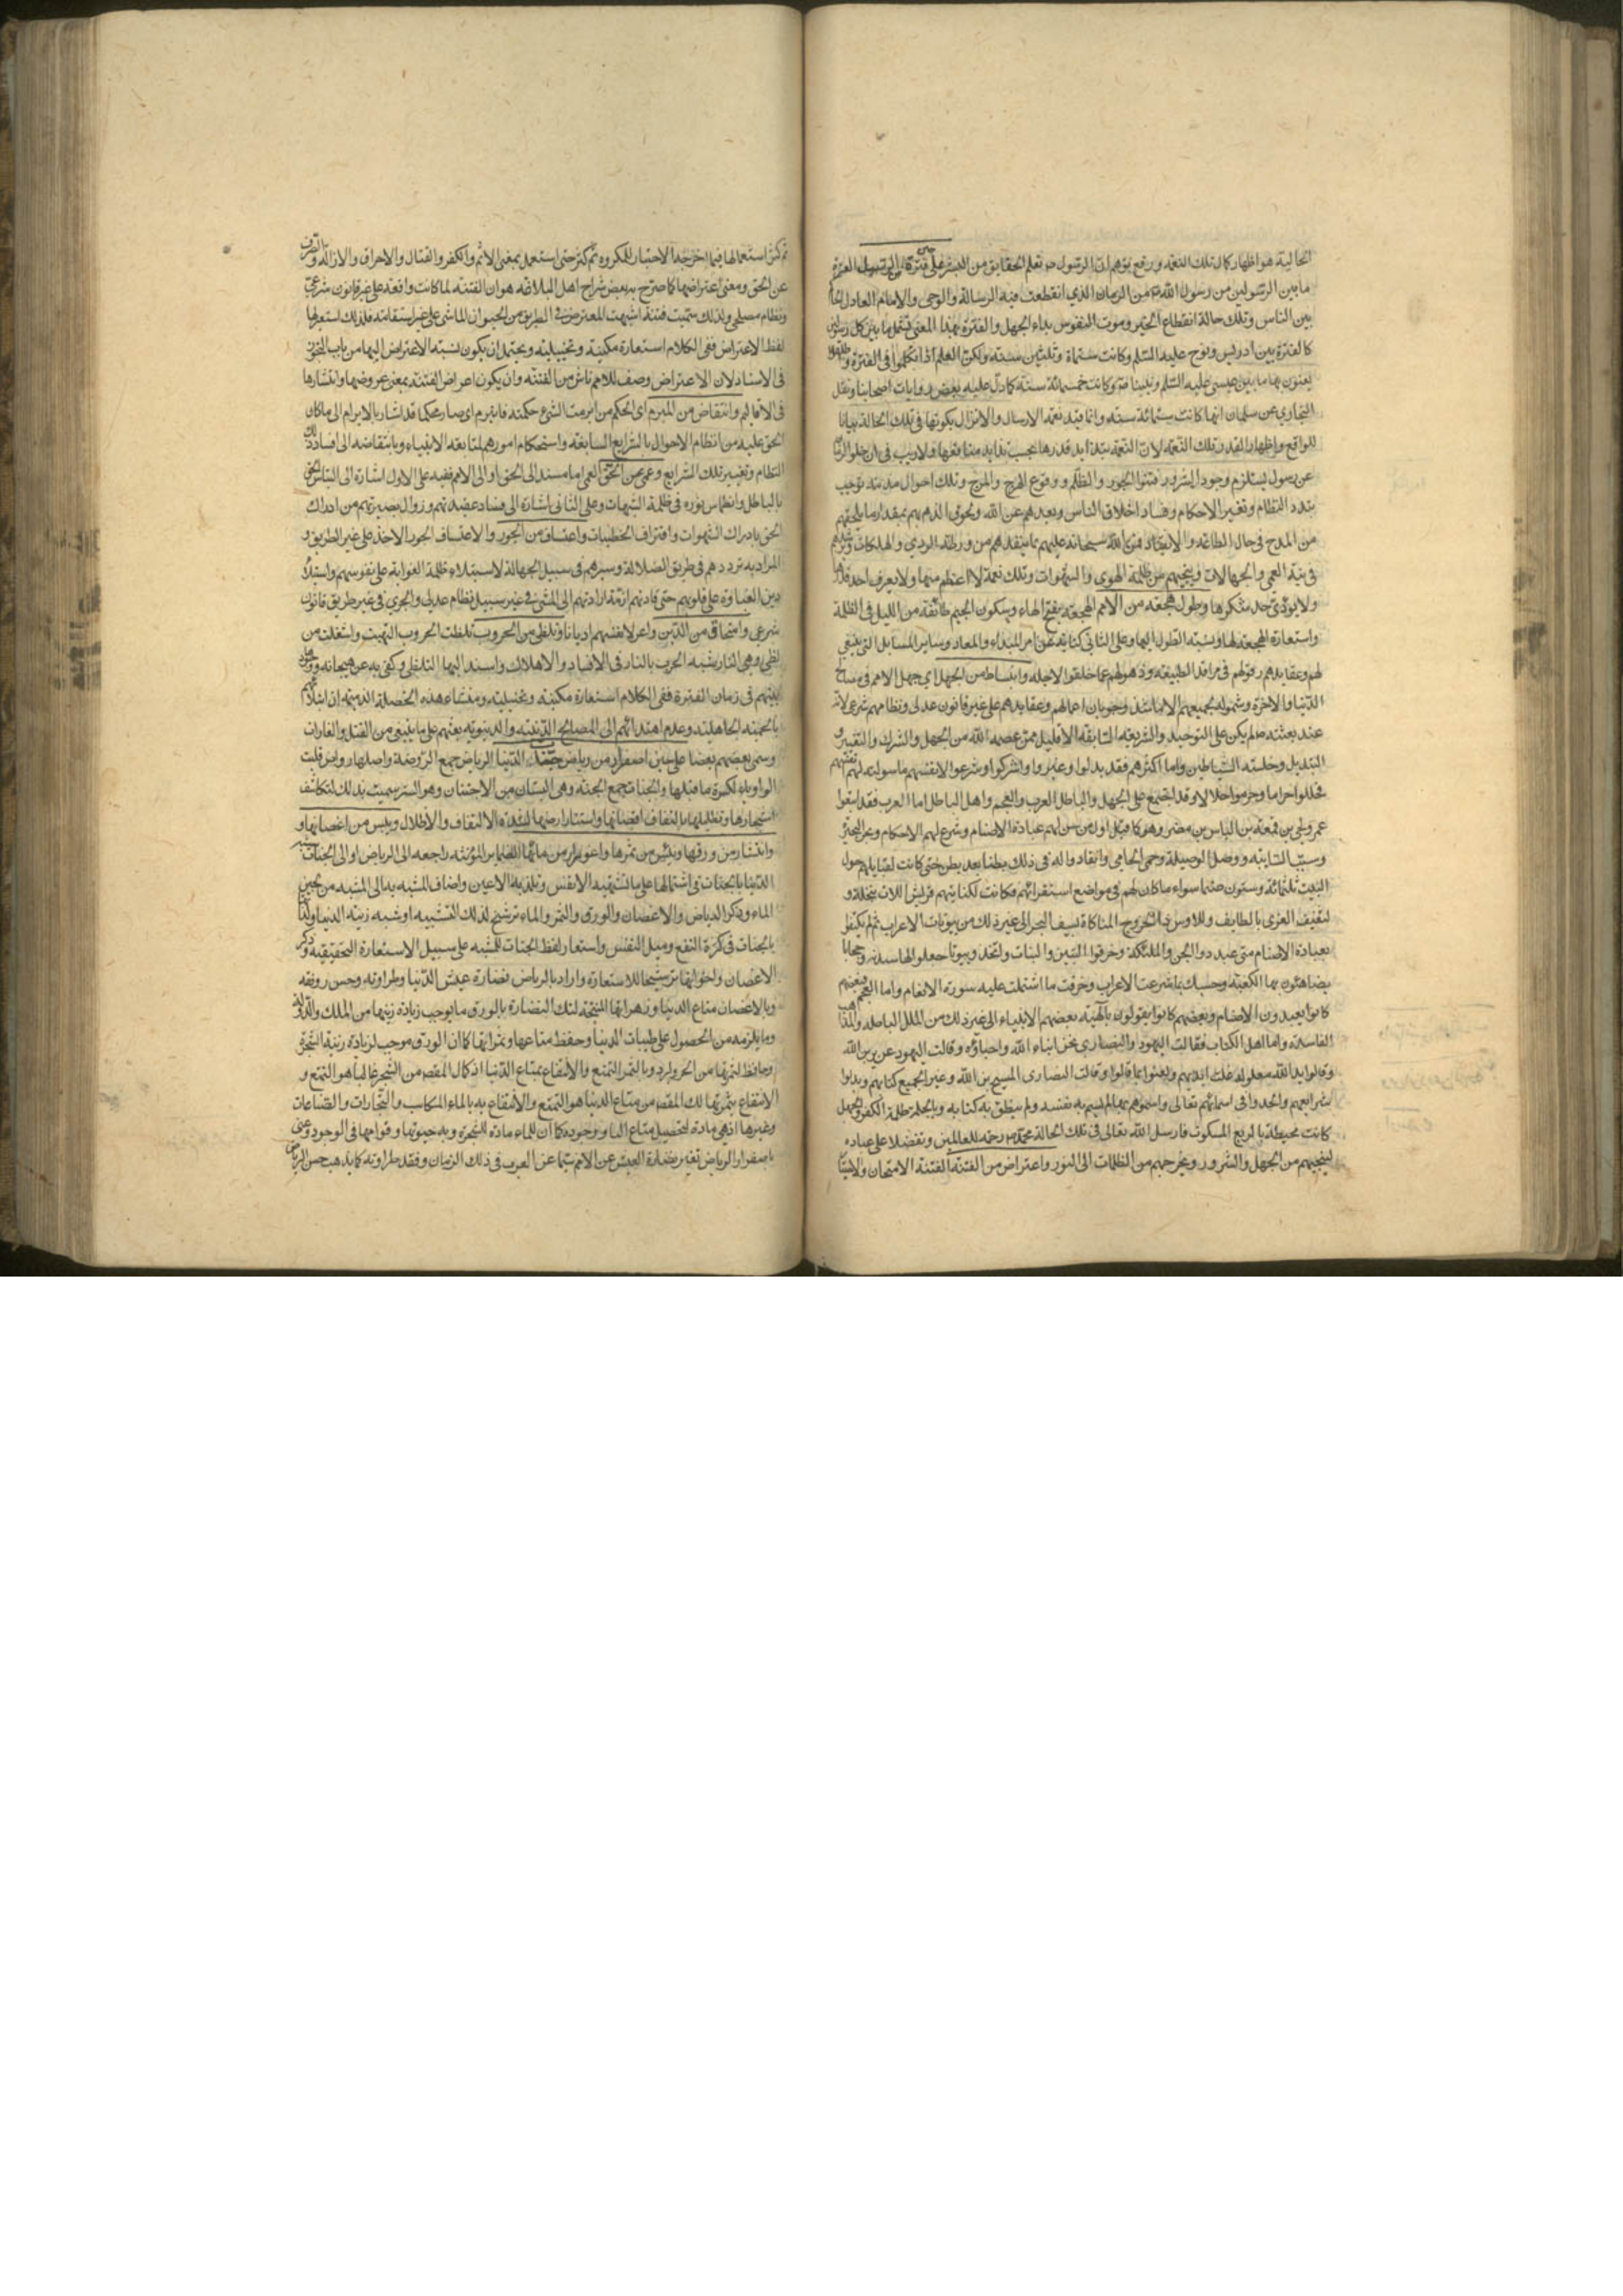 الحالية هو اظهار كمال تلك النعمة ورفع توهم ان الرسول صلى تعلم الحقايق من البشر على حين فترة من الرسل الفترة
ما بين الرسولين من رسل الله تع من الزمان الذي انقطعت فيه الرسالة والوحى والامام العادل الحاكم
بين الناس وتلك حالة انقطاع الخير وموت النفوس بداء الجهل والفترة بهذا المعنى تشمل ما بين كل رسولين
كالفترة بين ادريس ونوح عليه السلم وكانت ستماة وثلثين سنة ولكن العلماء اذا تكلموا فى الفترة واطلقوا
يعنون بها ما بين عيسى عليه السلم ونبينا ص وكانت خمسمائة سنة كما دل عليه بعض روايات اصحابنا ونقل
البخاري عن سلمان انها كانت ستمائة سنة وانما قيد نعمة الارسال والانزال بكونها فى تلك الحالة بيانا
للواقع واظهارا لقدر تلك النعمة لان النعمة يتزايد قدرها بحسب تزايد منافعها ولا ريب فى ان خلو الزمان
عن رسول يستلزم وجود الشرور وفشوا الجور والظلم ووقوع الهرج والمرج وتلك احوال مذمة توجب
تبدد النظام وتغير الاحكام وفساد اخلاق الناس وبعدهم عن الله ولحوق الذم بهم بمقدار ما يلحقهم
من المدح فى حال الطاعة والانقياد فمن الله سبحانه عليهم بما ينقذهم من ورطة الردي والهلكات وتيههم
فى تيه العمي والجهالات وينجيهم من ظلمة الهوى والشهوات وتلك نعمة لا اعظم منها ولا يعرف احد قدرها
ولا يؤدى حد شكرها وطول هجعة من الامم الهجعة بفتح الهاء وسكون الجيم طائفة من الليل فى الظلمة
واستعارة الهجعة لها ونسبة الطول اليها وعلى الثانى كناية عن امر المبداء والمعاد وساير المسايل التى ينبغى
لهم وعقايدهم رقودهم فى مراقد الطبيعة وذهولهم عما خلقوا لاجله وانبساط من الجهل اي جهل الامم فى مصالح
الدنيا والاخرة وشموله لجميعهم الا ما شذ وجريان اعمالهم وعقايدهم على غير قانون عدلى ونظام شرعى لانه
عند بعثته ص لم يكن على التوحيد والشريعة السابقة الا قليل ممن عصمه الله من الجهل والشرك والتغيير و
التبديل وخلسة الشياطين واما اكثرهم فقد بدلوا وغيروا واشركوا وشرعوا لانفسهم ما سولت لهم انفسهم
فحللوا حراما وحرموا حلالا وقد اجتمع على الجهل والباطل العرب والعجم واهل الباطل اما العرب فقد اتبعوا
عمرو بن لحى بن قمعة بن الياس بن مضر وهو كما قيل اول من سن لهم عبادة الاصنام وشرع لهم الاحكام وبحر البحيرة
وسيب السايبة ووصل الوصيلة وحمى الحامى وانقادوا له فى ذلك بطنا بعد بطن حتى كانت لقبايلهم حول
البيت ثلثمائة وستون صنما سواء ما كان لهم فى مواضع استقرارهم فكانت لكنانة وقريش اللات بنخلة و
لثقيف العزى بالطايف وللاوس والخزرج المناة بسيف البحر الى غير ذلك من بيوتات الاعراب ثم لم يكتفوا
بعبادة الاصنام حتى عبدوا الجن والملئكة وخرقوا البنين والبنات واتخذوا بيوتا جعلوا لها سدنة وحجابا
يضاهئون بها الكعبة وحسبك بما شرعت الاعراب وخرقت ما اشتملت عليه سورة الانعام واما العجم فبعضهم
كانوا يعبدون الاصنام وبعضهم كانوا يقولون بآلهية بعضهم الى غير ذلك من الملل الباطلة والمذاهب
الفاسدة واما اهل الكتاب فقالت اليهود والنصارى نحن ابناء الله واحباؤه وقالت اليهود عزير بن الله
وقالوا يد الله مغلولة غلت ايديهم ولعنوا بما قالوا وقالت النصارى المسيح بن الله وغير الجميع كتابهم وبدلوا
شرايعهم والحدوا فى اسمائه تعالى وسموه بما لم يسم به نفسه ولم ينطق به كتابه وبالجملة ظلمة الكفر والجهل
كانت محيطة بالربع المسكون فارسل الله تعالى فى تلك الحالة محمدا ص رحمة للعالمين وتفضلا على عباده
لينجيهم من الجهل والشرور ويخرجهم من الظلمات الى النور واعتراض من الفتنة الفتنة الامتحان والابتلاء
ثم كثر استعمالها فيما اخرجه الاختبار للمكروه ثم كثر حتى استعمل بمعنى الاثم والكفر والقتال والاحراق والازالة والصرف
عن الحق ومعنى اعتراضها كما صرح به بعض شراح نهج البلاغة هو ان الفتنة لما كانت واقعة على غير قانون شرعى
ونظام مصلحى ولذلك سميت فتنة اشبهت المعترض فى الطريق من الحيوان الماشى على غير استقامة فلذلك استعير لها
لفظ الاعتراض ففى الكلام استعارة مكنية وتخييلية ويحتمل ان يكون نسبة الاعتراض اليها من باب التجوز
فى الاسناد لان الاعتراض وصف للامم ناش من الفتنة وان يكون اعتراض الفتنة بمعنى عروضها وانتشارها
فى الاقاليم وانتقاض من المبرم اى المحكم من ابرمت الشئ حكمته فانبرم اى صار محكما قد اشار بالابرام الى ما كان
الخلق عليه من انتظام الاحوال بالشرايع السابقة واستحكام امورهم لمتابعة الانبياء وبانتقاضه الى افساد ذلك
النظام وتغيير تلك الشرايع وعمى من الحق العمى اما مسند الى الحق او الى الامم ففيه على الاول اشارة الى التباس الحق
بالباطل وانطماس نوره فى ظلمة الشبهات وعلى الثانى اشارة الى فساد عقيدتهم وزوال بصيرتهم من ادراك
الحق بادراك الشهوات واقتراف الخطيئات واعتساف من الجور والاعتساف الجور الاخذ على غير الطريق و
المراد به ترددهم فى طريق الضلالة وسيرهم فى سبيل الجهالة لاستيلاء ظلمة الغواية على نفوسهم واستيلاء
رين الغباوة على قلوبهم حتى قادتهم ازمة ارادتهم الى المشى فى غير سبيل نظام عدلى والجري فى غير طريق قانون
شرعى وامتحاق من الدين واعراض لانفسهم اديانا وتلظى من الحروب تلظت الحروب التهبت واشتعلت من
لظى وهى النار شبه الحرب بالنار فى الافساد والاهلاك واسند اليها التلظى وكنى به عن هيجانه ووجوده
بينهم فى زمان الفترة ففى الكلام استعارة مكنية وتخييلية ومنشاء هذه الخصلة الذميمة ان ابتلائهم
بالحمية الجاهلية وعدم اهتدائهم الى المصالح الدينية والدنيوية بعثهم على ما ينبغى من القتل والغارات
وسبى بعضهم بعضا على حين اصفرار من رياض جنات الدنيا الرياض جمع الروضة واصلها رواض قلبت
الواو ياء لكسرة ما قبلها والجنات جمع الجنة وهى البستان من الاجتنان وهو الستر سميت بذلك لتكاثف
اشجارها وتظليلها بالتفاف اغصانها واستتار ارضها لشدة الالتفاف والاظلال ويبس من اغصانها و
وانتشار من ورقها ويأس من ثمرها واغورار من مائها الضماير المؤنثة راجعة الى الرياض او الى الجنات شبه
الدنيا بالجنات فى اشتمالها على ما تشتهيه الانفس وتلذ به الاعين واضاف المشبه به الى المشبه من قبيل لجين
الماء وذكر الرياض والاغصان والورق والثمر والماء ترشيح لذلك التشبيه او شبه زينة الدنيا ولذاتها
بالجنات فى كثرة النفع وميل النفس واستعار لفظ الجنات للمشبه على سبيل الاستعارة التحقيقية وذكر
الاغصان واخواتها ترشيحا للاستعارة واراد بالرياض نضارة عيش الدنيا وطراوته وحسن رونقه
وبالاغصان متاع الدنيا وزهراتها المنتجة لتلك النضارة بالورق ما يوجب زيادة زينتها من الملك والدولة
وما يلزمه من الحصول على طيبات الدنيا وحفظ متاعها وثمراتها كما ان الورق موجب لزيادة زينة الشجرة
وحافظ لثمرتها من الحر والبرد وبالثمر التمتع والانتفاع بمتاع الدنيا اذ كمال المقصود من الشجر غالبا هو التمتع و
الانتفاع بثمرتها كذلك المقصود من متاع الدنيا هو التمتع والانتفاع به بالماء المكاسب والتجارات والصناعات
وغيرها اذ هى مادة لتحصيل متاع الدنيا ووجوده كما ان الماء مادة للشجرة وبه حيوتها وقوامها فى الوجود وعنى
باصفرار الرياض تغير نضارة العيش عن الامم سيما عن العرب فى ذلك الزمان وفقد طراوته كما يذهب حسن الرياض